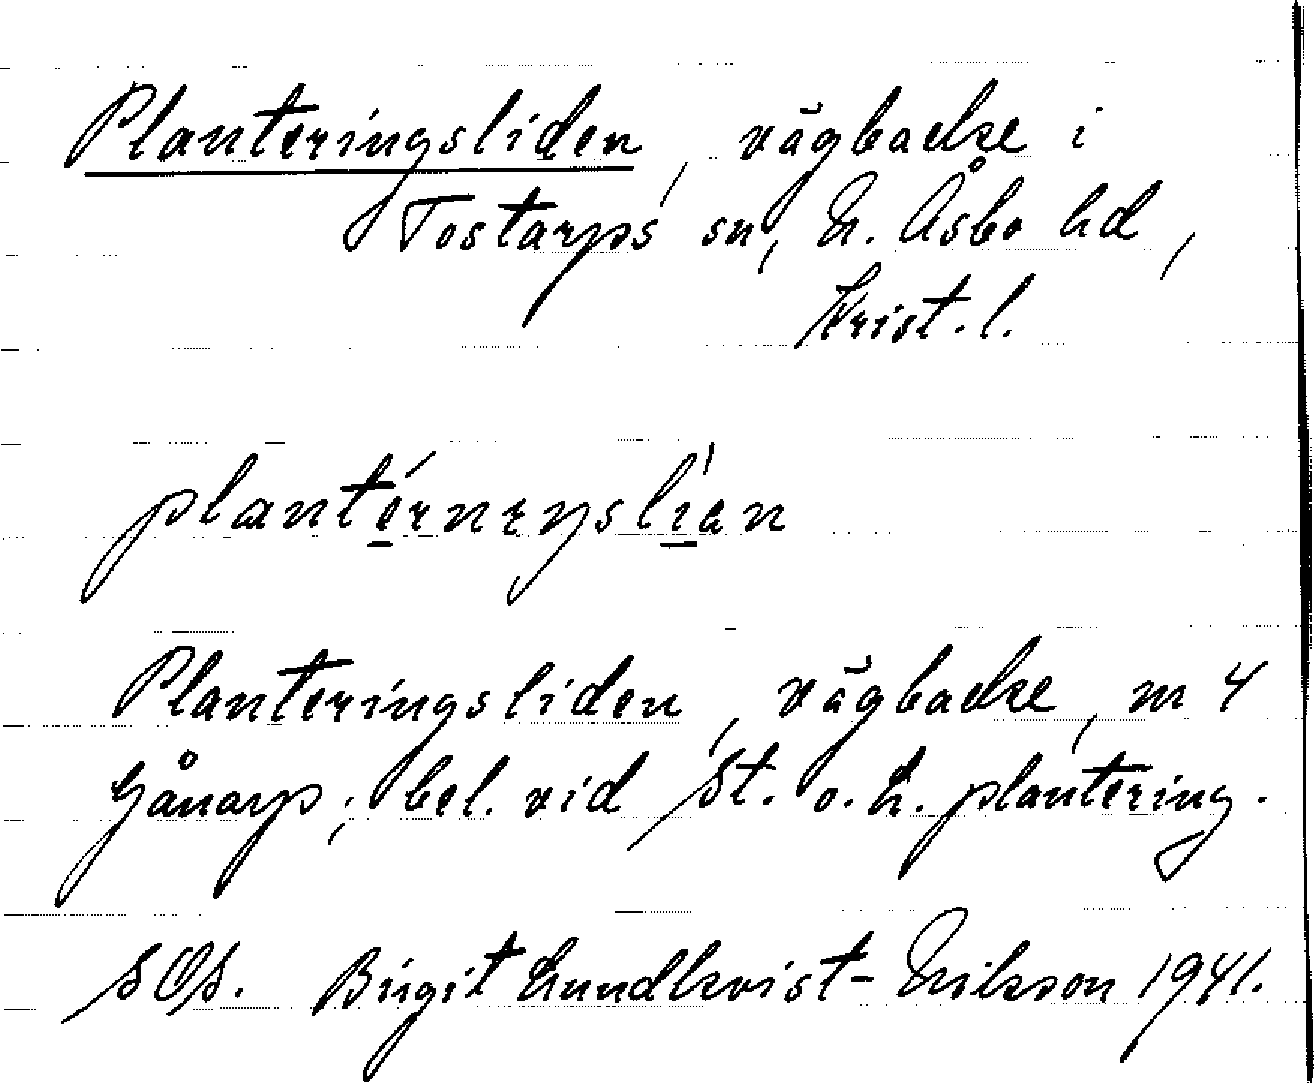 Planteringsliden, vägbacke i
Tostarps sn, N. Åsbo hd,
Krist. l.
Planteringsliden, vägbacke, m 4
Gånarp; bel. vid St. o. L. plantering.
SOS. Birgit Lundkvist-Nilsson 1941.